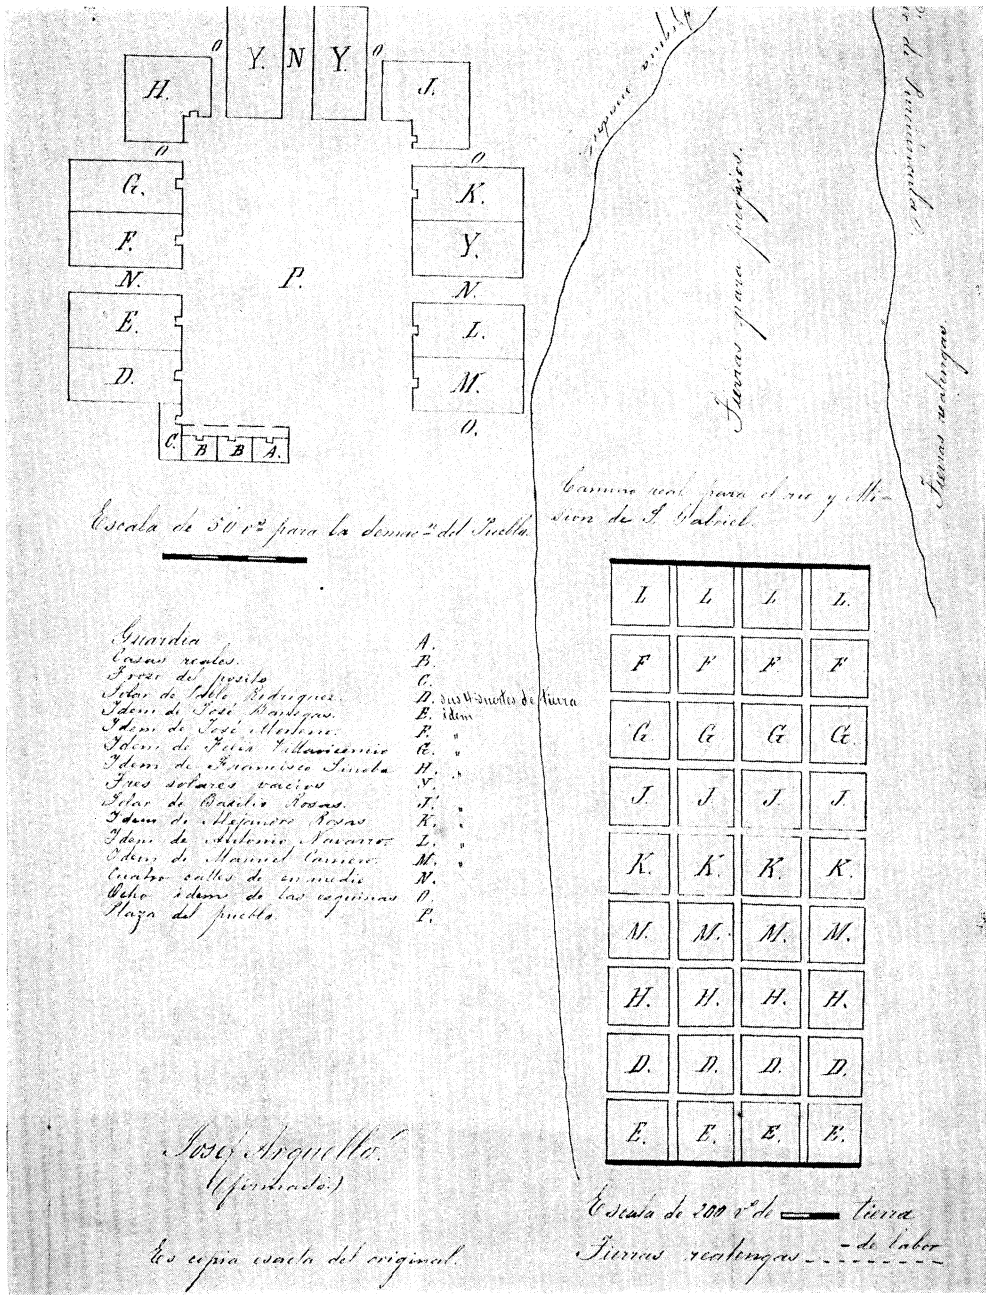 O Y. N Y. O
H. J.
O O
G. K.
F. Y.
N. P. N.
E. L.
D. M.
C. B B A. O.
Tierras para propios.
Tierras realengas
Camino real para el rio y Mi-
sion de S. Gabriel.
Escala de 50 vs para la demacn del Puebla
Guardia A.
Casas reales. B.
del posito C.
Solar de Pablo Rodriguez. D. sus 4 suertes de tierra
Idem de José Banegas. E. idem
Idem de José Moreno. F. "
Idem de Felix Villavicencio G. "
Idem de Francisco H. "
Tres solares vacios Y.
Solar de Basilio Rosas. J. "
Idem de Alejandro Rosas K. "
Idem de Antonio Navarro. L. "
Idem de Manuel Camero. M. "
Cuatro calles de en medio N.
Ocho idem de las esquinas O.
Plaza del pueblo. P.
L L L L.
F F F F
G G G G.
J. J. J. J.
K. K. K. K.
M. M. M. M.
H. H. H. H.
D. D. D. D.
E. E. E. E.
Josef Arguello.
(firmado.)
Es copia esacta del original.
Escala de 200 vs de tierra
- de labor
Tierras realengas